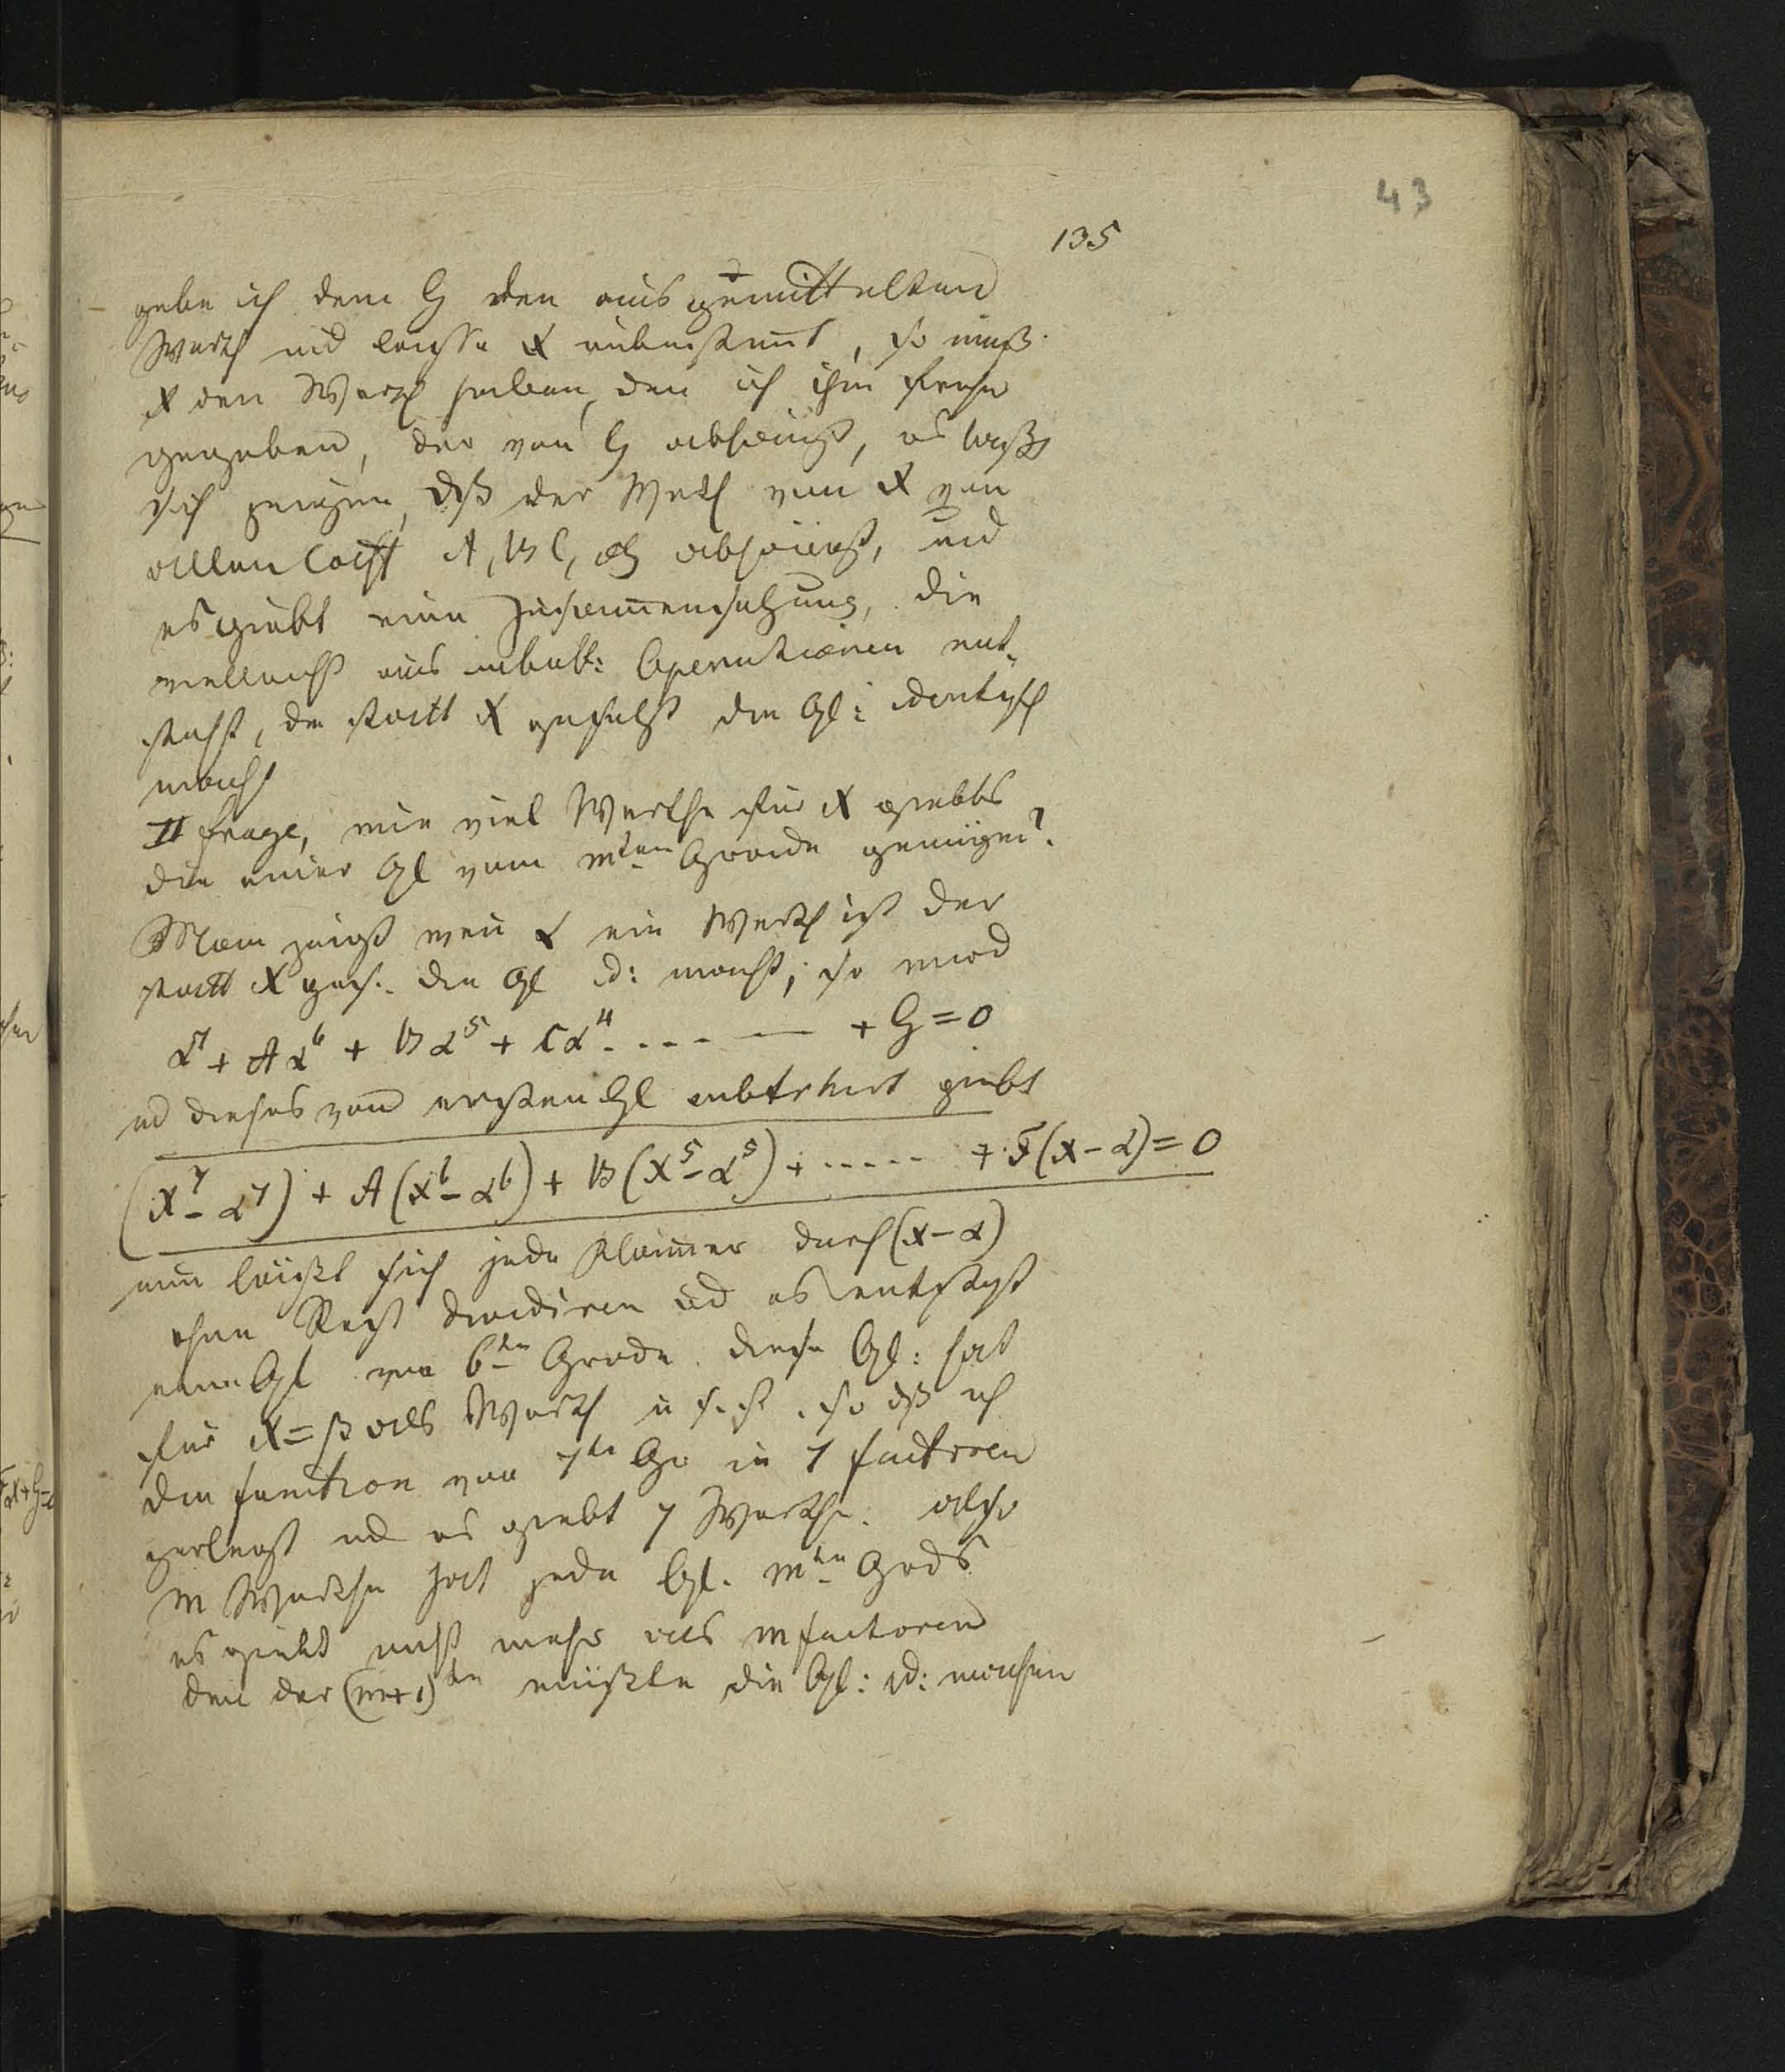 43
135
gebe ich dem G den ausgemittelten
Werth und lasse x unbestimt, so muß
x den Werth haben, den ich ihm früher
gegeben, der von G abhängt, es läßt
sich zeigen, dß der Werth von x von
allen Coeff A, B C, G abhängt, und
es giebt eine Zusam̄ensetzung, die
vielleicht aus unbek: Operationen ent-
steht, die statt x gesetzt die Gl: identisch
macht
II Frage, wie viel Werthe für x giebts
die einer Gl vom mten Grade genügen?
Man zeigt wen̄ α ein Werth ist der
statt x ges. die Gl id: macht, so wird
α⁷ + Aα⁶ + Bα⁵ + Cα⁴ . - - - — + G = 0
ud dieses von ersten Gl subtrhirt giebt
(x⁷ - α⁷) + A(x⁶ - α⁶) + B(x⁵ - α⁵) + ----- + F(x - α) = 0
nun läßt sich jede Klam̄er durch (x - α)
ohne Rest dividiren ud es entsteht
eine Gl von 6ten Grade. diese Gl: hat
für x = β als Werth u s. f. so dß ich
die function von 7ten Gr in 7 factoren
zerlegt ud es giebt 7 Werthe. also
m Werthe hat jede Gl. mten Grds
es giebt nicht mehr als m factoren
den̄ der (m+1)te müßte die Gl: id: machen